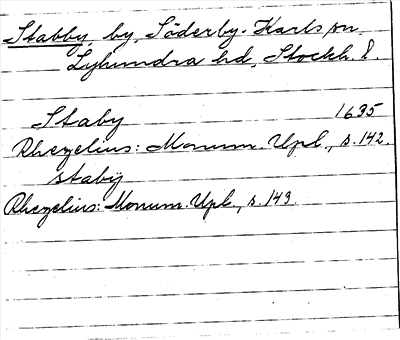 Stabby by, Söderby-Karls sn,
Lyhundra hd, Stockh. l.
Staby 1635
Rhezelius: Monum. Upl., s. 142.
staby
Rhezelius: Monum. Upl., s. 143